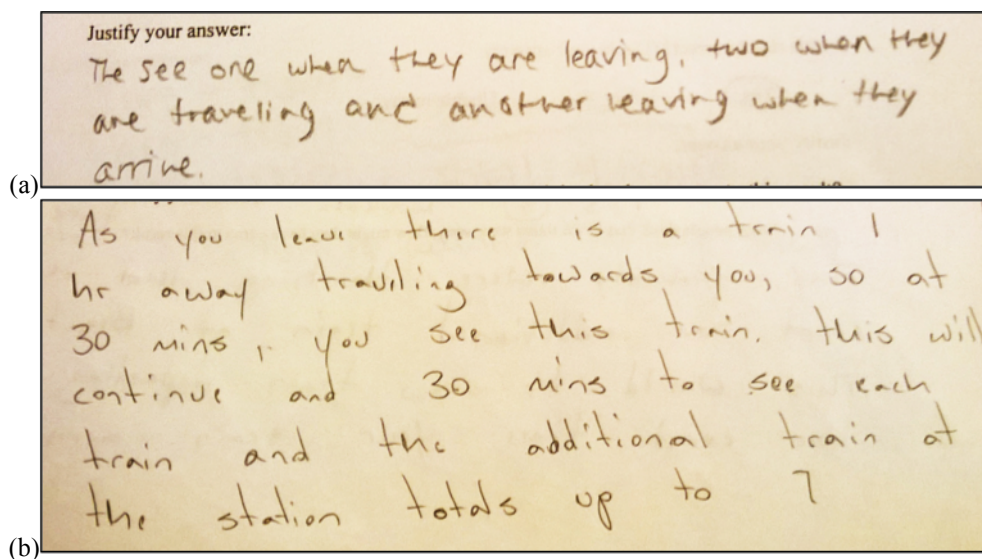 Justify your answer:
The see one when they are leaving, two when they
are traveling and another leaving when they
arrive.
(a)
As you leave there is a train 1
hr away traviling towards you, so at
30 mins, you see this train. this will
continue and 30 mins to see each
train and the additional train at
the station totals up to 7
(b)